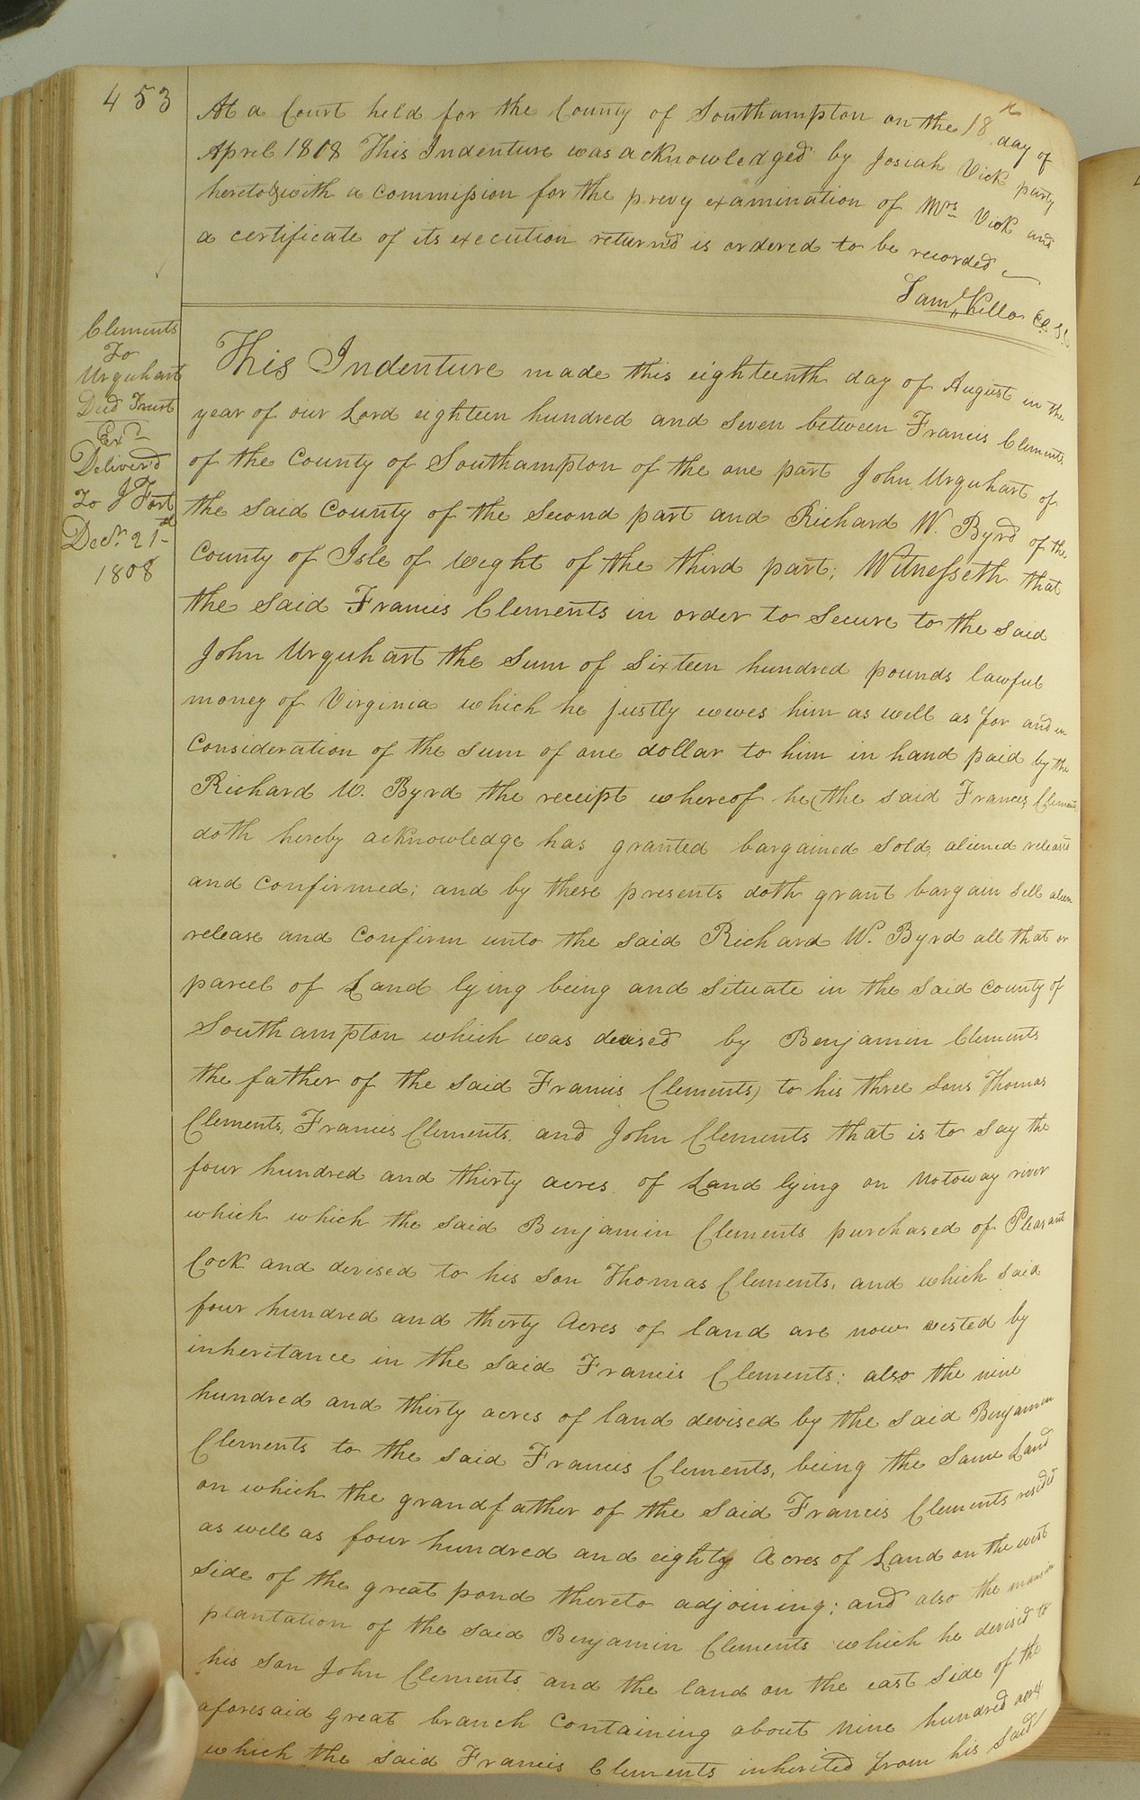 453
At a Court held for the County of Southampton on the 18th day of
April 1808 This Indenture was acknowledged by Josiah Vick party
hereto & with a commission for the privy examination of Mrs Vick and
a certificate of its execution returnd is ordered to be recorded
Saml Kello C. S. C
Clements
To
Urquhart
Deed Trust
Exd
Deliverd
To J Fort
Decr. 21st
1808
This Indenture made this eighteenth day of August in the
year of our Lord eighteen hundred and seven between Francis Clements
of the County of Southampton of the one part John Urquhart of
the said County of the Second part and Richard W. Byrd of the
County of Isle of Weght of the third part; Witnesseth that
the said Francis Clements in order to Secure to the said
John Urquhart the Sum of Sixteen hundred pounds lawful
money of Virginia which he justly owes him as well as for and in
Consideration of the sum of one dollar to him in hand paid by the
Richard W. Byrd the receipt whereof he (the said Francis Clements
doth hereby acknowledge has granted bargained sold, aliened released
and confirmed; and by these presents doth grant bargain sell alien
release and confirm unto the said Richard W. Byrd all that or
parcel of Land lying being and Situate in the said County of
Southampton which was devised by Benjamin Clements
the father of the said Francis Clements) to his three sons Thomas
Clements, Francis Clements, and John Clements that is to say the
four hundred and thirty acres of Land lying on Notoway river
which which the said Benjamin Clements purchased of Pleasant
Cock and devised to his son Thomas Clements, and which said
four hundred and thirty Acres of land are now vested by
inheretance in the said Francis Clements; also the nine
hundred and thirty acres of land devised by the said Benjamin
Clements to the said Francis Clements, being the Same Land
on which the grandfather of the said Francis Clements resided
as well as four hundred and eighty Acres of Land on the west
side of the great pond thereto adjoining; and also the mansion
plantation of the said Benjamin Clements which he devised to
his son John Clements and the land on the east side of the
aforesaid great branch Containing about nine hundred acres
which the said Francis Clements inherited from his said